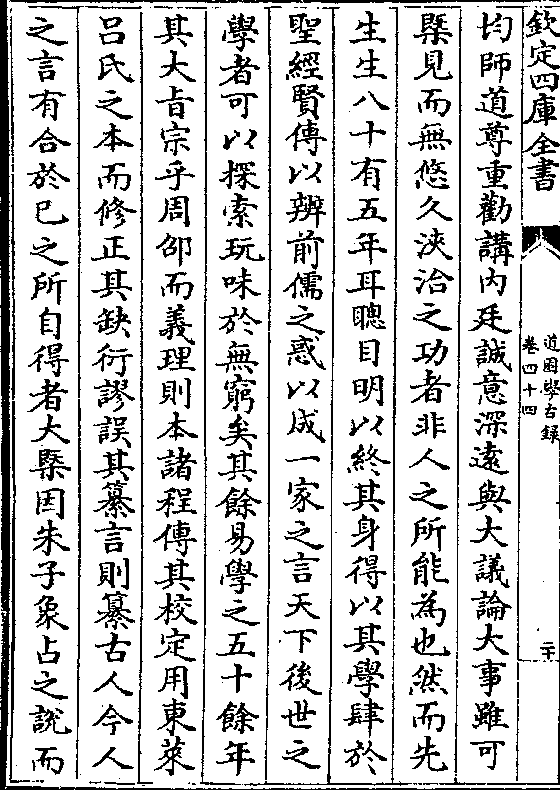 欽定四庫全書
道園學古錄
卷四十四
二十
均師道尊重勸講内廷誠意深逺與大議論大事雖可
槩見而無悠久浹洽之功者非人之所能為也然而先
生生八十有五年耳聰目明以終其身得以其學肆於
聖經賢傳以辨前儒之惑以成一家之言天下後世之
學者可以探索玩味於無窮矣其餘易學之五十餘年
其大㫖宗乎周邵而義理則本諸程傳其校定用東萊
吕氏之本而修正其缺衍謬誤其纂言則纂古人今人
之言有合於已之所自得者大槩因朱子象占之說而